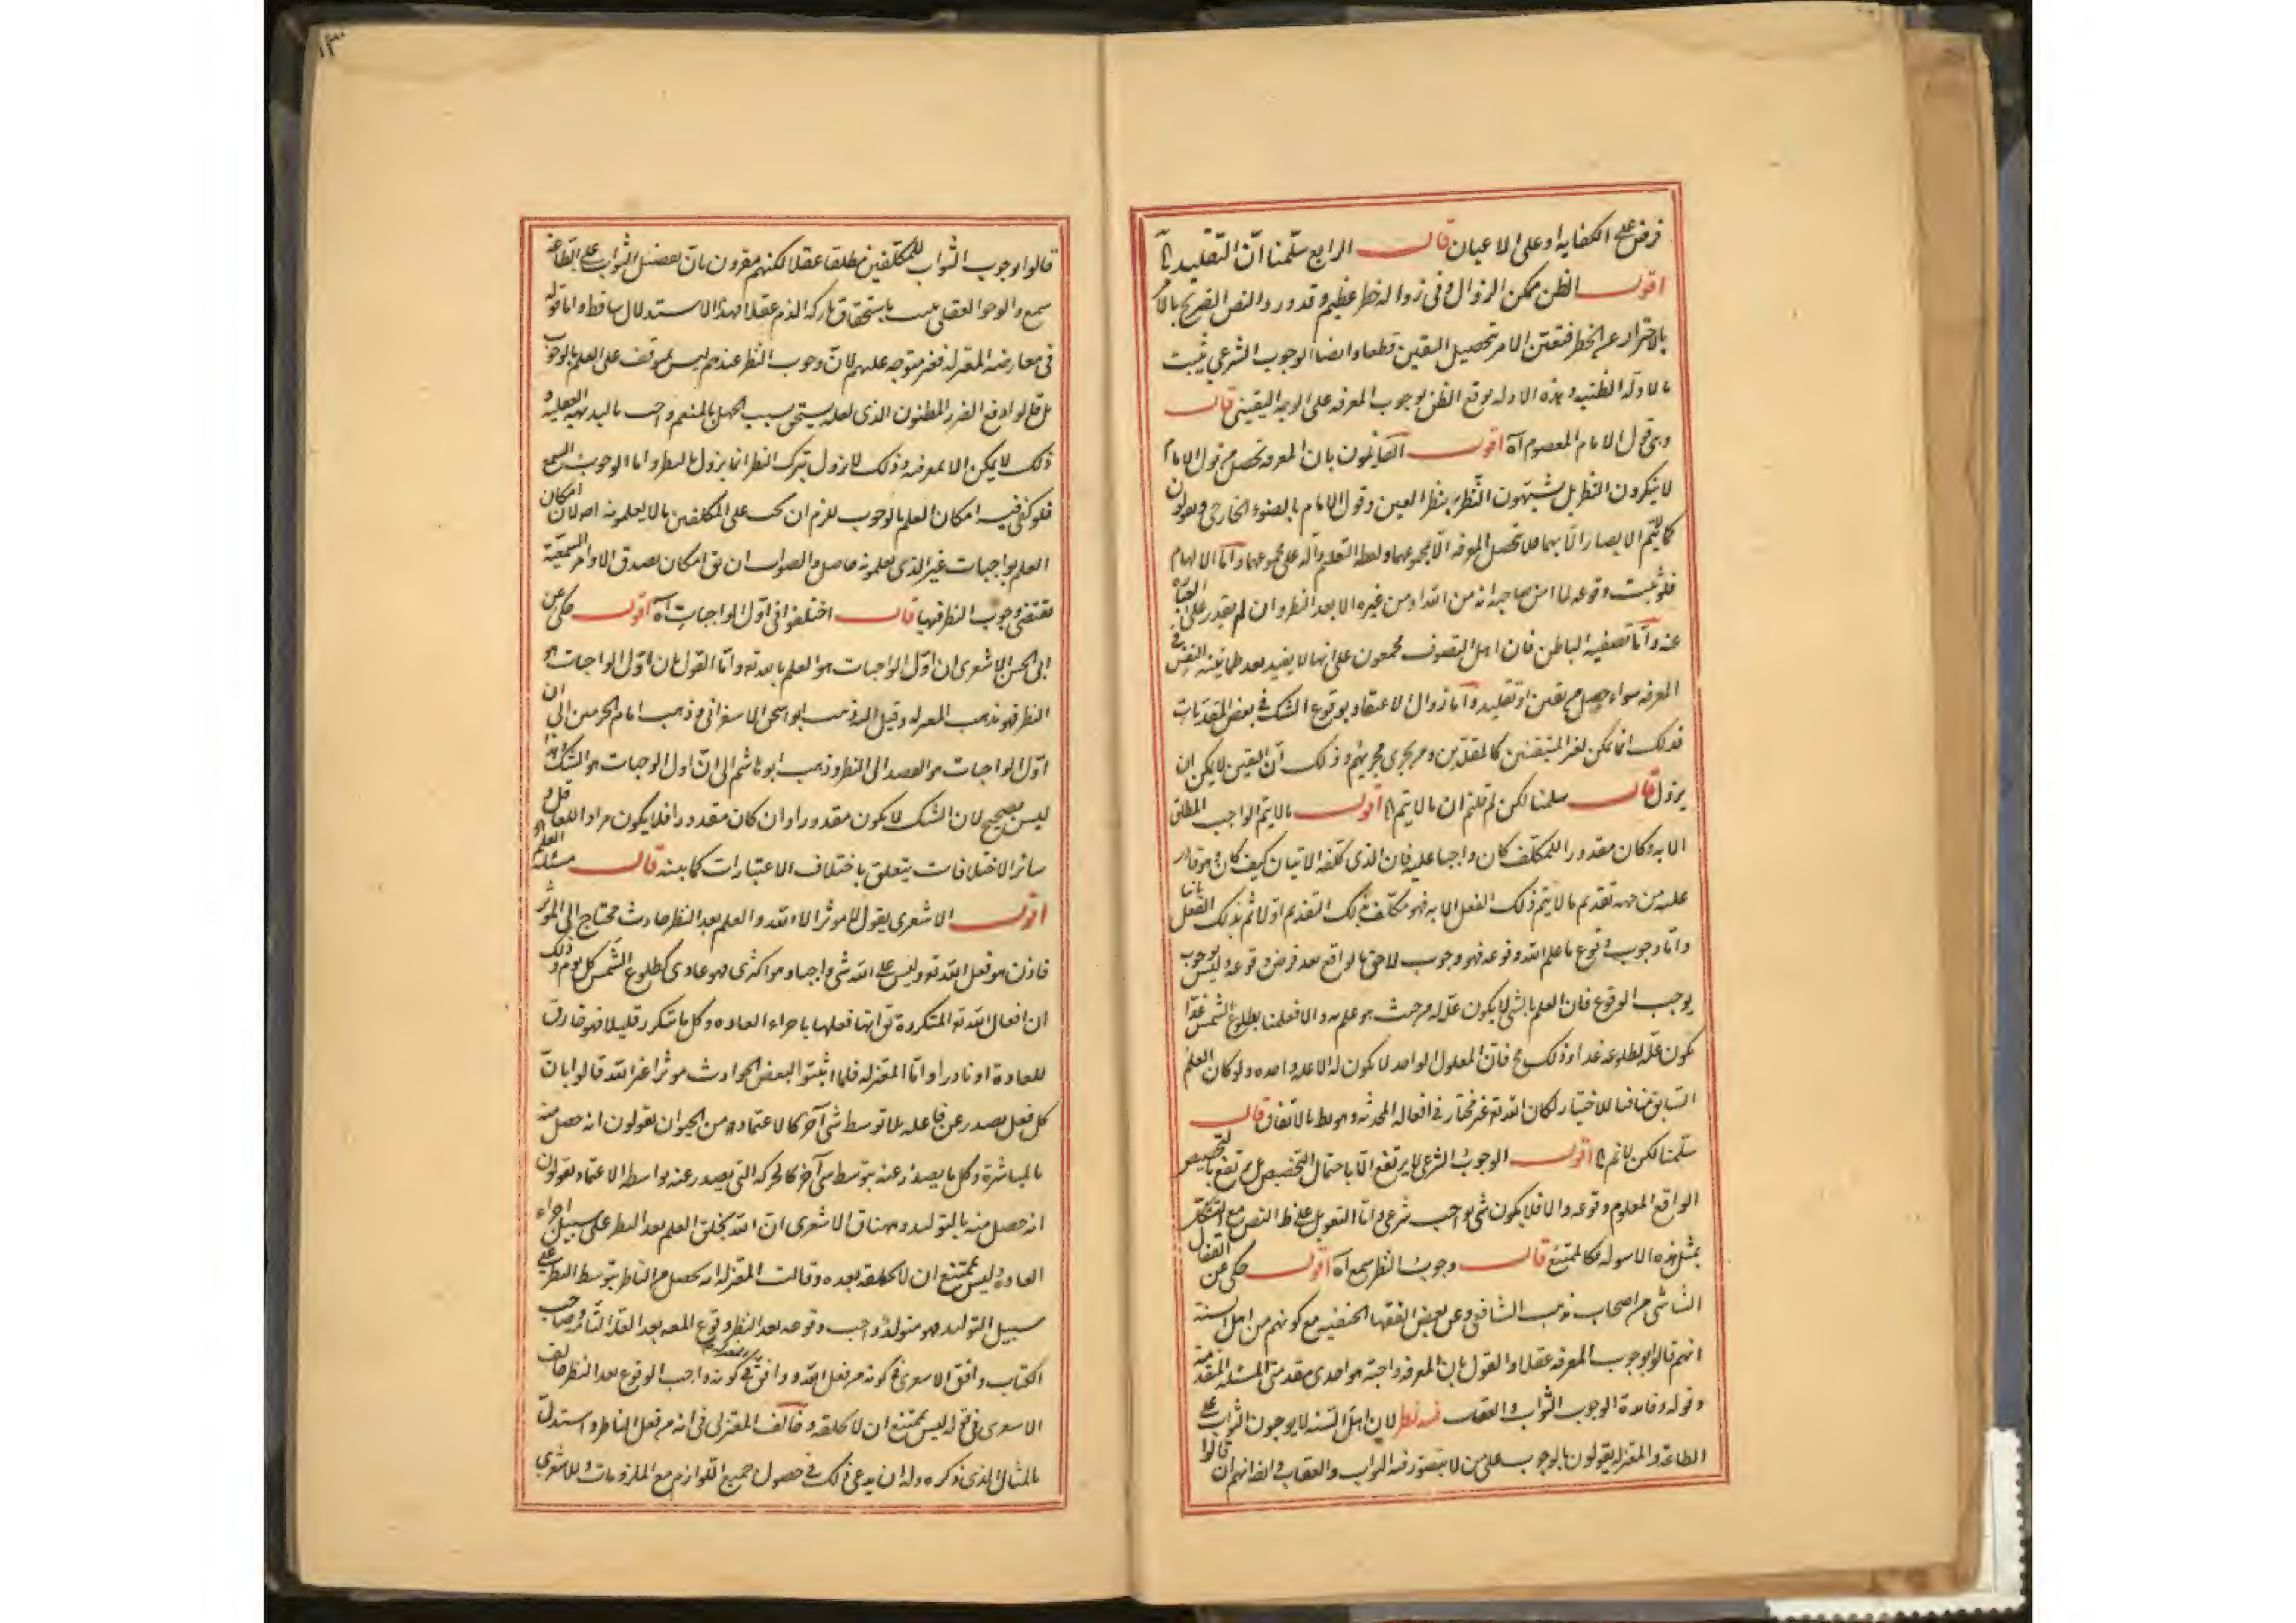 فرض على الكفاية او على الاعيان قال الرابع سلمنا ان التقليد الخ
اقول الظن ممكن الزوال وفى زواله خطر عظيم وقد ورد النص الصريح بالامر
بالاحتراز عن الخطر فتعين الامر بتحصيل اليقين قطعا وايضا الوجوب الشرعى يثبت
بالادلة الظنية وبهذه الادلة يوقع الظن بوجوب المعرفة على الوجه اليقينى قال
وهى قول الامام المعصوم آه اقول القايلون بان المعرفة تحصل من قول الامام
لا ينكرون النظر بل يشبهون النظر بنظر العين وقول الامام بالضوء الخارجى ويقولون
كما لا يتم الابصار الا بهما فلا تحصل المعرفة الا بمجموعهما ولفظة التعليم دالة على مجموعهما واما الالهام
فلو ثبت وقوعه لما امن صاحبه انه من الله او من غيره الا بعد النظر وان لم يقدر على العبارة
عنه واما تصفية الباطن فان اهل التصوف مجمعون على انها لا يفيد بعد طمانينة النفس فى
المعرفة سواء حصل من يقين او تقليد واما زوال الاعتقاد بوقوع الشك فى بعض المقدمات
فذلك انما يمكن لغير المتيقنين كالمقلدين ومن يجرى مجريهم وذلك ان اليقين لا يمكن ان
يزول قال سلمنا لكن لم قلتم ان ما لا يتم الخ اقول ما لا يتم الواجب المطلق
الا به وكان مقدورا للمكلف كان واجبا عليه فان الذى كلفه الاتيان كيف كان وهو قادر
عليه من جهة تقديم ما لا يتم ذلك الفعل الا به فهو مكلف بذلك التقديم اولا ثم بذلك الفعل ثانيا
واما وجوب وقوع ما علم الله وقوعه فهو وجوب لاحق بالواقع بعد فرض وقوعه وليس بوجوب
يوجب الوقوع فان العلم بالشى لا يكون علة له من حيث هو علم به والا فعلمنا بطلوع الشمس غدا
يكون علة لطلوعه غدا وذلك مح فان المعلول الواحد لا يكون له الا علة واحده ولو كان العلم
السابق منافيا للاختيار لكان الله تع غير مختار فى افعاله المحدثه وهو بط بالاتفاق قال
سلمنا لكن لا نم الخ اقول الوجوب الشرعى لا يرتفع الا باحتمال التخصيص بل يرتفع بالتخصيص
الواقع المعلوم وقوعه والا فلا يكون شى بواجب شرعى واما التعويل على ظ النص مع التشكك
بمثل هذه الاسولة فكالممتنع قال وجوب النظر سمعى آه اقول حكى عن القفال
الشاشى من اصحاب مذهب الشافعى وعن بعض الفقها الحنفيه مع كونهم من اهل السنة
انهم قالوا بوجوب المعرفة عقلا والقول بان المعرفة واجبة هو احدى مقدمتى المسئلة المتقدمة
وقوله وفايدة الوجوب الثواب والعقاب فيه نظر لان اهل السنه لا يوجبون الثواب على
الطاعة والمعتزلة يقولون بالوجوب على من لا يتصور فيه الثواب والعقاب وايضا انهم ان قالوا
١٣
قالوا بوجوب الثواب للمكلفين مطلقا عقلا لكنهم مقرون بان تفضيل الثواب على الطاعة
سمعى والوجوب العقلى يثبت باستحقاق تاركه الذم عقلا فهذا الاستدلال ساقط واما قوله
فى معارضة المعتزلة فغير متوجه عليهم لان وجوب النظر عندهم ليس بموقف على العلم بالوجوب
بل قالوا دفع الضرر المظنون الذى لعله يستحق بسبب الجهل بالمنعم واجب بالبديهية العقلية و
ذلك لا يمكن الا بمعرفته وذلك لا يزول بترك النظر انما يزول بالنظر واما الوجوب السمعى
فلو كفى فيه امكان العلم بالوجوب للزم ان يجب على المكلفين ما لا يعلمونه اصلا لان امكان
العلم بواجبات غير الذى يعلمونه حاصل والصواب ان يق امكان تصدق الاوامر السمعية
تقتضى وجوب النظر فيها قال اختلفوا فى اول الواجبات آه اقول حكى عن
ابى الحسن الاشعرى ان اول الواجبات هو العلم بالله تع واما القول بان اول الواجبات هو
النظر فهو مذهب المعتزلة وقيل اليه ذهب ابو اسحق الاسفراينى وذهب امام الحرمين الى ان
اول الواجبات هو القصد الى النظر وذهب ابو هاشم الى ان اول الواجبات هو الشك وهذا
ليس بصحيح لان الشك لا يكون مقدورا وان كان مقدورا فلا يكون مرادا للعاقل و
سائر الاختلافات يتعلق باختلاف الاعتبارات كما بينه قال مسئلة العلم
اقول الاشعرى يقول لا موثر الا الله والعلم بعد النظر حادث محتاج الى الموثر
فاذن هو فعل الله تع وليس على الله شى واجبا وهو اكثرى فهو عادى كطلوع الشمس كل يوم وذلك
ان افعال الله تع المتكررة يق انها فعلها باجراء العاده وكل ما يتكرر قليلا فهو خارق
للعادة او نادرا واما المعتزله فلما اثبتوا لبعض الحوادث موثرا غير الله قالوا بان
كل فعل يصدر عن فاعله بلا توسط شى آخر كالاعتماد من الحيوان يقولون انه حصل منه
بالمباشرة وكل ما يصدر عنه بتوسط شى آخر كالحركه التى يصدر عنه بواسطه الاعتماد يقولون
انه حصل منه بالتوليد وههنا قال الاشعرى ان الله يخلق العلم بعد النظر على سبيل اجراء
العادة وليس بممتنع ان لا يخلقه بعده وقالت المعتزلة انه يحصل من الناظر بتوسط النظر على
سبيل التوليد فهو متولد واجب وقوعه بعد النظر وقوع المعلول بعد العلة التامة وصاحب
الكتاب وافق الاشعرى فى كونه من فعل الله ووافق فى كونه واجب الوقوع بعد النظر خالف
الاشعرى فى قوله ليس بممتنع ان لا يخلقه وخالف المعتزلى فى انه من فعل الناظر واستدل
بالمثال الذى ذكره وله ان يدعى ذلك فى حصول جميع اللوازم مع الملزومات وللاشعرى